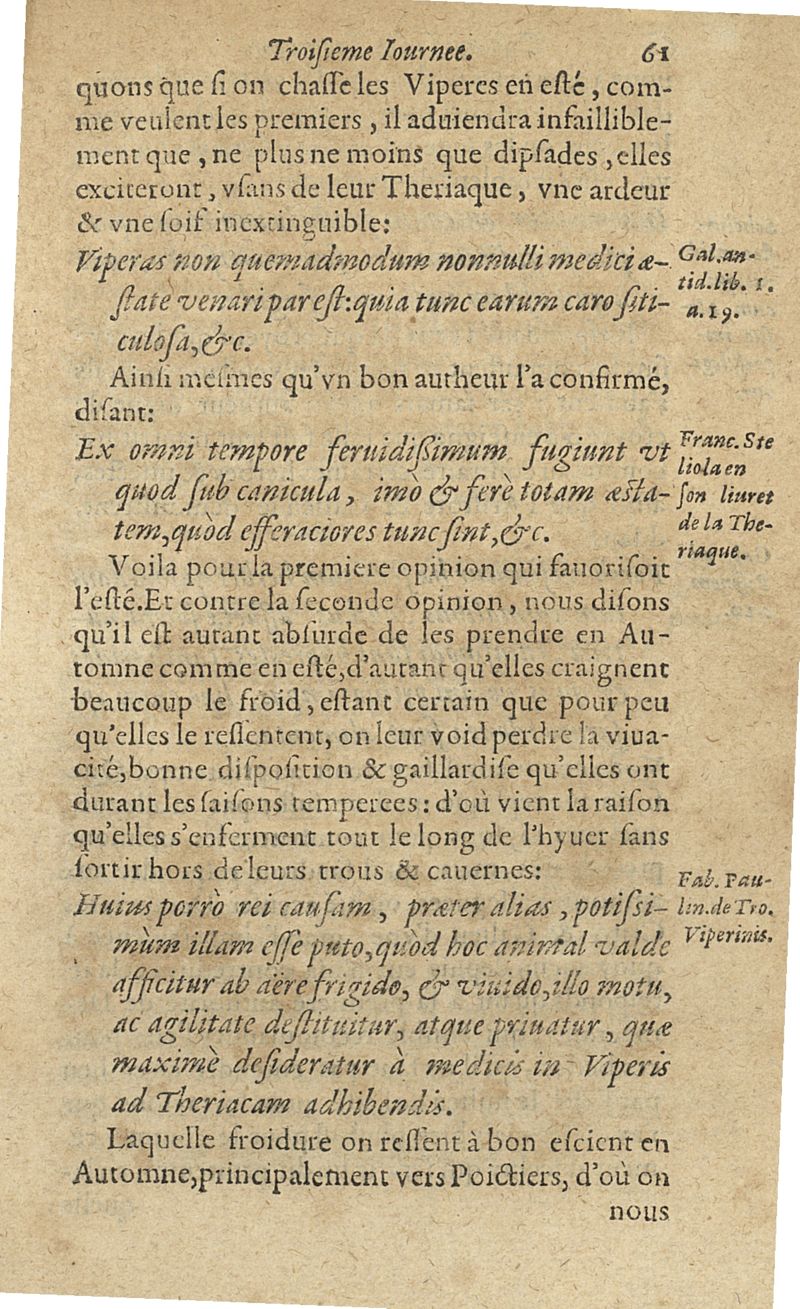 Troiſieme Iournee. 61
quons que ſi on chaſſe les Viperes en eſté, com-
me veulent les premiers, il aduiendra infaillible-
ment que, ne plus ne moins que dipſades, elles
exciteront, vſans de leur Theriaque, vne ardeur
& vne ſoif inextinguible:
Viperas non quemadmodum nonnulli medici æ-
ſtate venari par eſt: quia tunc earum caro ſiti-
culoſa, &c.
Gal. an-
tid. lib. 1.
a. 19.
Ainſi meſmes qu'vn bon autheur l'a confirmé,
diſant:
Ex omni tempore feruidiſſimum fugiunt vt
quod ſub canicula, imò & ferè totam æſta-
tem, quòd efferaciores tunc ſint, &c.
Franc. Ste
liola en
ſon liuret
de la The-
riaque.
Voila pour la premiere opinion qui fauoriſoit
l'eſté. Et contre la ſeconde opinion, nous diſons
qu'il eſt autant abſurde de les prendre en Au-
tomne comme en eſté, d'autant qu'elles craignent
beaucoup le froid, eſtant certain que pour peu
qu'elles le reſſentent, on leur void perdre la viua-
cité, bonne diſpoſition & gaillardiſe qu'elles ont
durant les ſaiſons temperees: d'où vient la raiſon
qu'elles s'enferment tout le long de l'hyuer ſans
ſortir hors de leurs trous & cauernes:
Huius porrò rei cauſam, præter alias, potiſsi-
mùm illam eſſe puto, quòd hoc animal valde
afficitur ab aëre frigido, & viuido, illo motu,
ac agilitate deſtituitur, atque priuatur, quæ
maximè deſideratur à medicis in Viperis
ad Theriacam adhibendis.
Fab. Pau-
lin. de Tro.
Viperinis.
Laquelle froidure on reſſent à bon eſcient en
Automne, principalement vers Poictiers, d'où on
nous